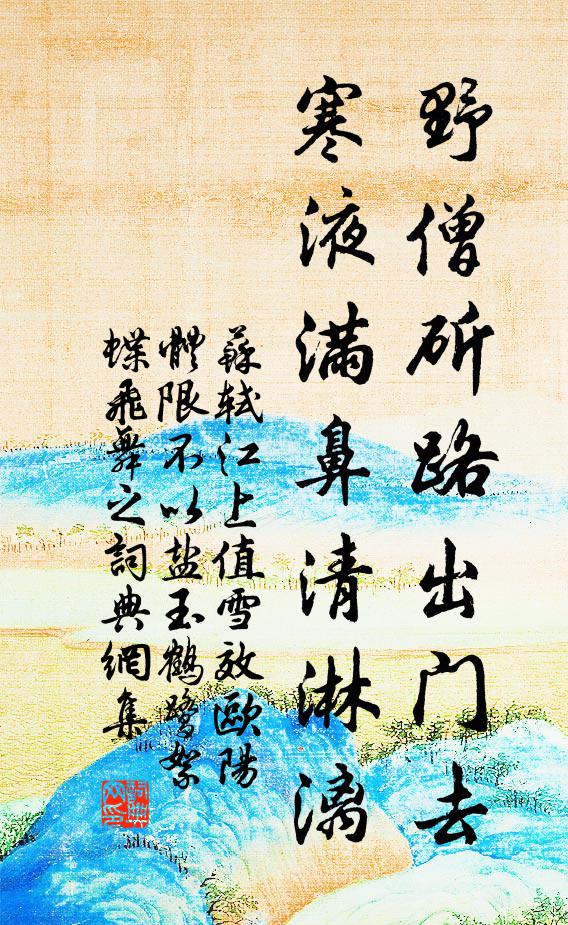 野僧斫路出門去
寒液满鼻清淋漓
蘇軾江上值雪效歐陽
體限不以盐玉鶴鷺絮
蝶飛舞之詞典網集